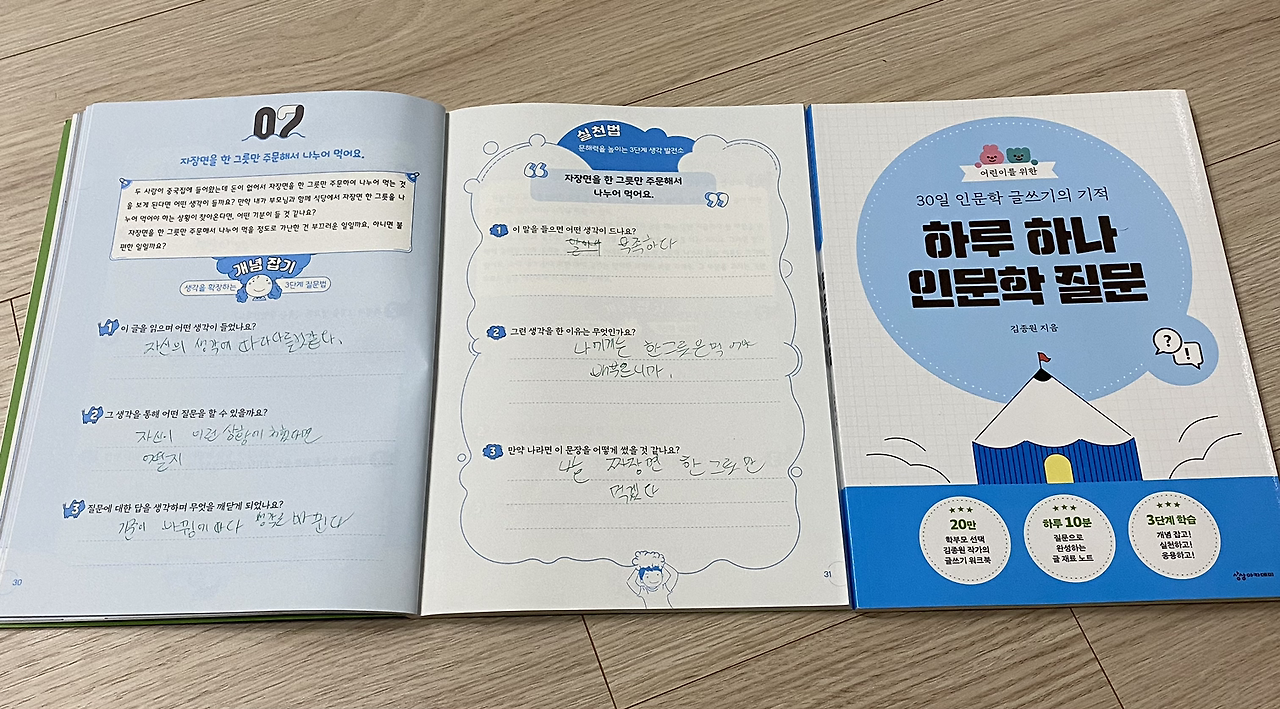 07
자장면을 한 그릇만 주문해서 나누어 먹어요.
두 사람이 중국집에 들어왔는데 돈이 없어서 자장면을 한 그릇만 주문하여 나누어 먹는 것
을 보게 된다면 어떤 생각이 들까요? 만약 내가 부모님과 함께 식당에서 자장면 한 그릇을 나
누어 먹어야 하는 상황이 찾아온다면, 어떤 기분이 들 것 같나요?
자장면을 한 그릇만 주문해서 나누어 먹을 정도로 가난한 건 부끄러운 일일까요, 아니면 불
편한 일일까요?
개념 잡기
생각을 확장하는 3단계 질문법
1 이 글을 읽으며 어떤 생각이 들었나요?
자신의 생각에 따라 다를것같다.
2 그 생각을 통해 어떤 질문을 할 수 있을까요?
자신이 이런 상황에 처했다면
어떨지
3 질문에 대한 답을 생각하며 무엇을 깨닫게 되었나요?
따라 바뀐다
30
실천법
문해력을 높이는 3단계 생각 발전소
자장면을 한 그릇만 주문해서
나누어 먹어요.
1 이 말을 들으면 어떤 생각이 드나요?
부족하다
2 그런 생각을 한 이유는 무엇인가요?
나에게는 한그릇은 먹어야
배부르니까.
3 만약 나라면 이 문장을 어떻게 썼을 것 같나요?
나는 짜장면 한 그릇만
먹겠다
31
어린이를 위한
30일 인문학 글쓰기의 기적
하루 하나
인문학 질문
김종원 지음
? !
20만
학부모 선택
김종원 작가의
글쓰기 워크북
하루 10분
질문으로
완성하는
글 재료 노트
3단계 학습
개념 잡고!
실천하고!
응용하고!
상상아카데미